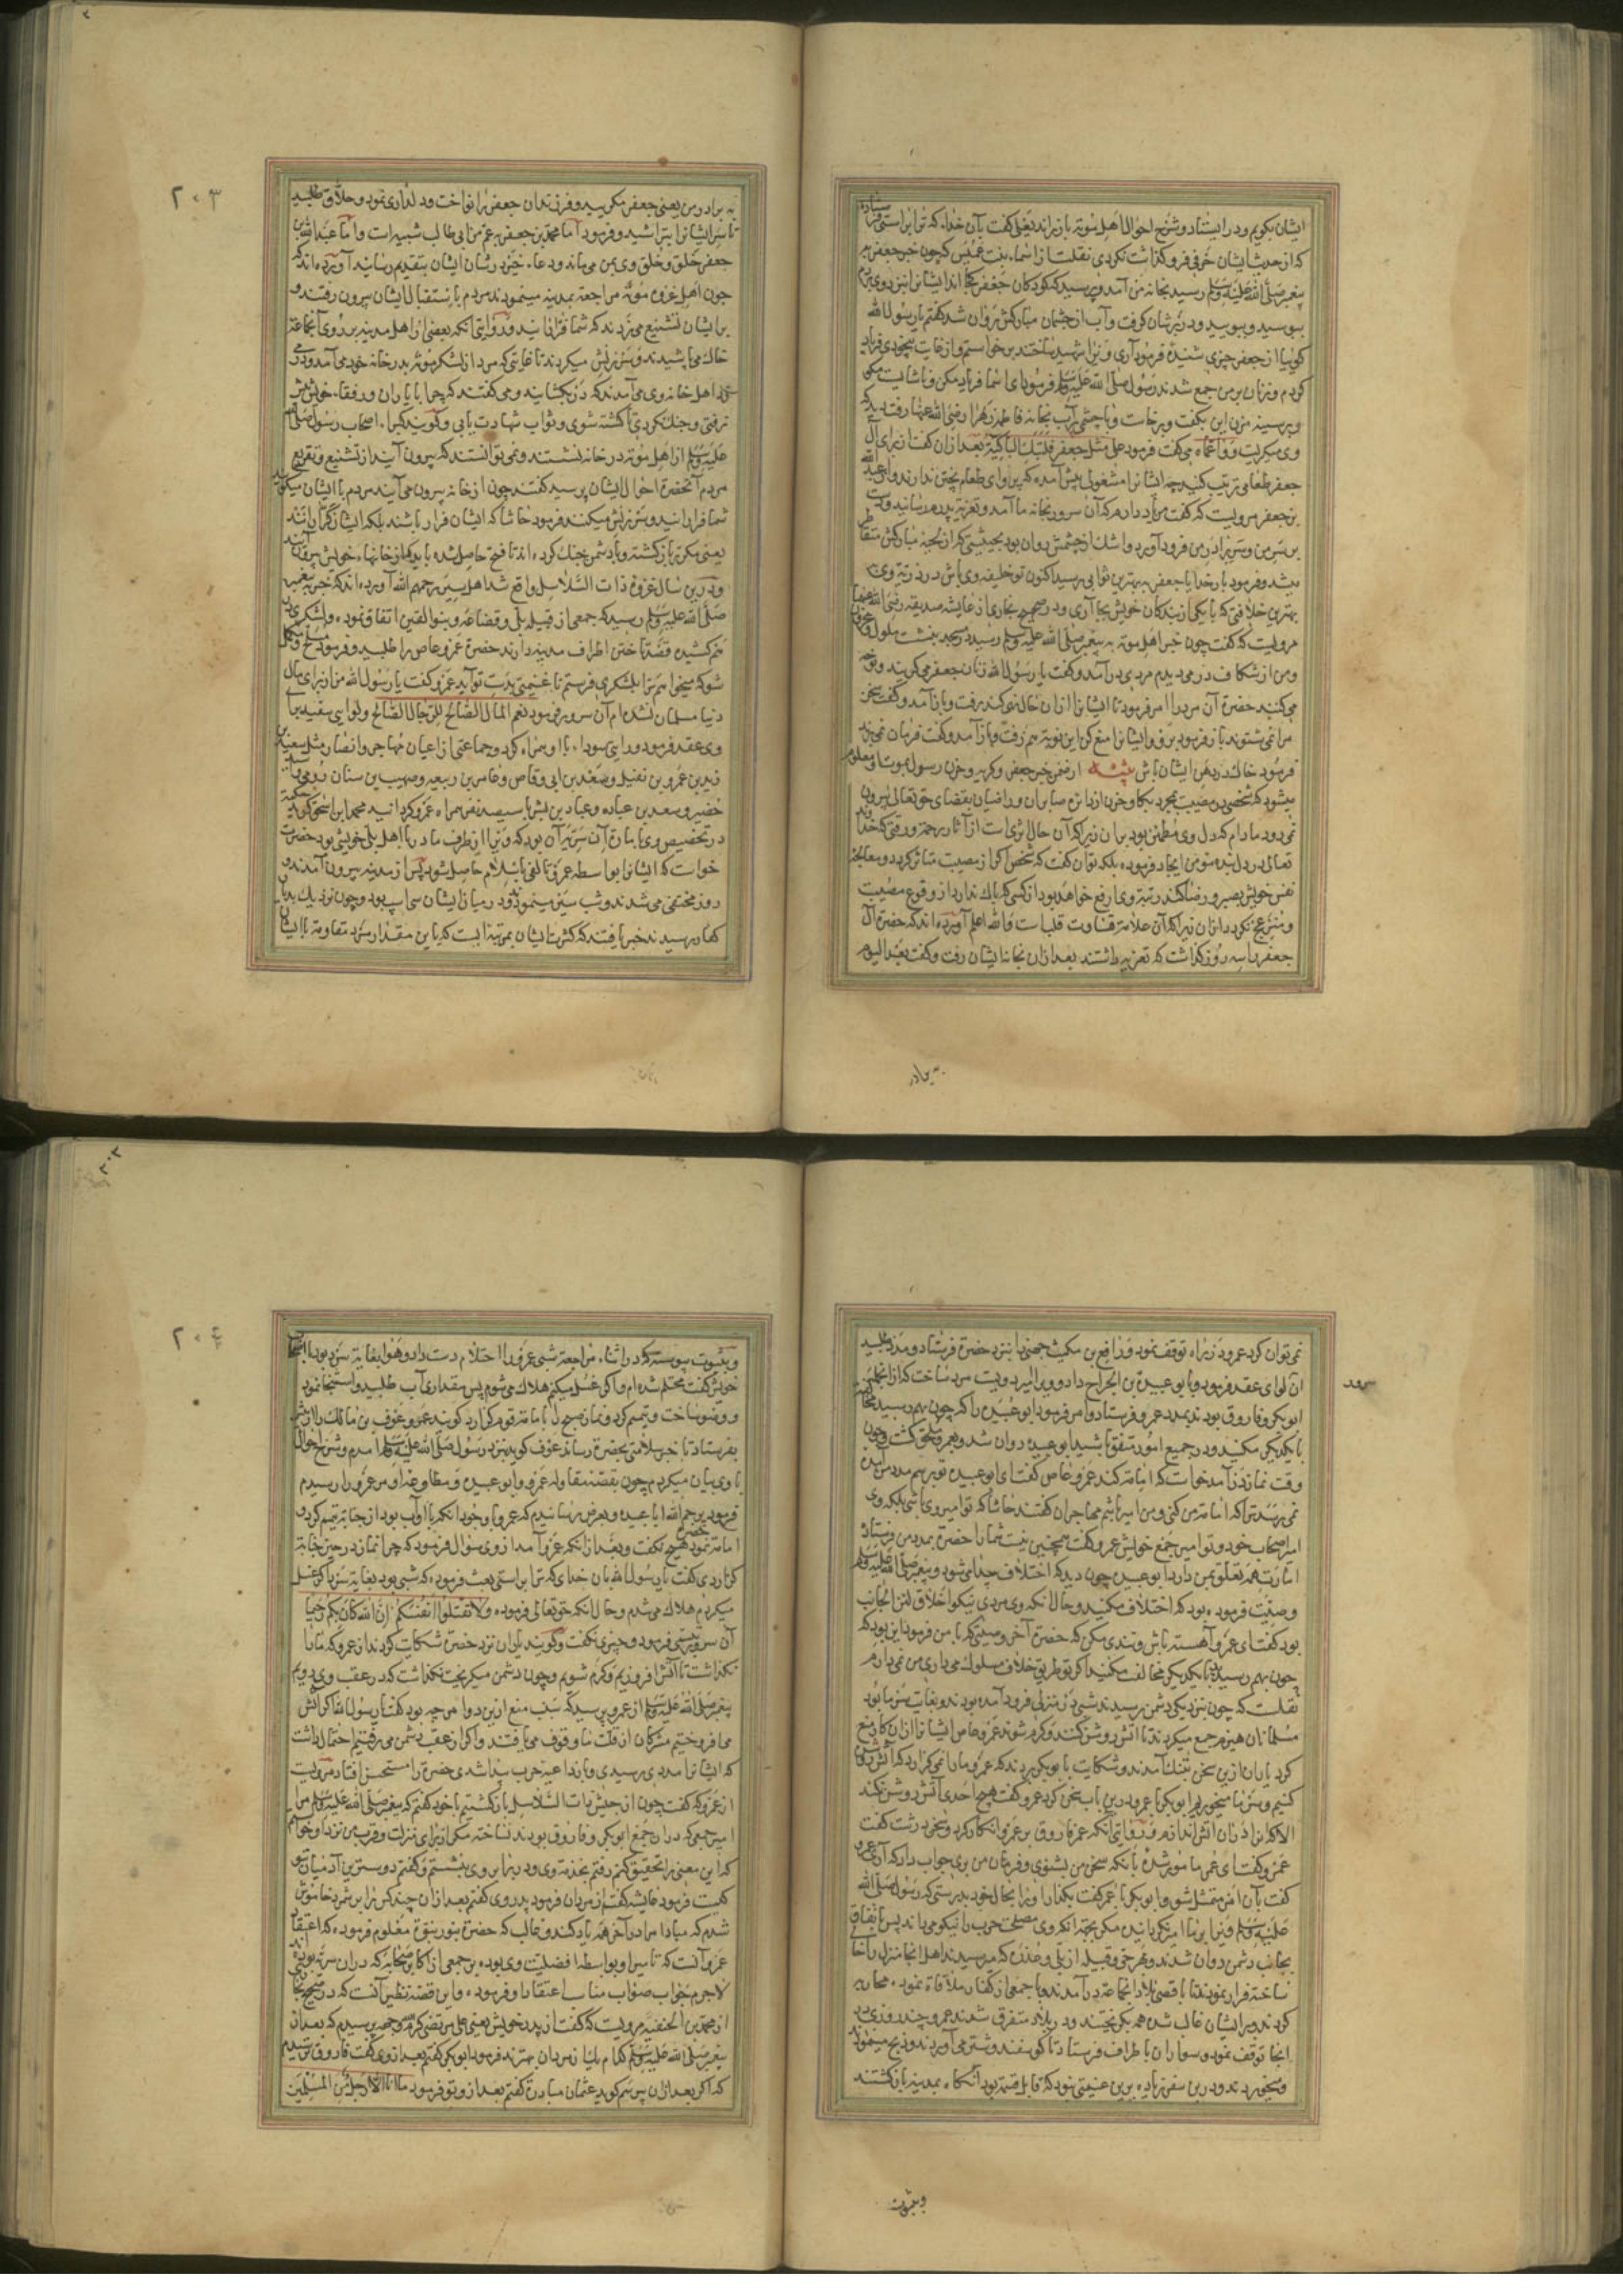 ایشان بکویم ودر ایستاد وشرح احوال اهل موته باز راند یعلی کفت بآن خدا که ترا براستی فرستاده
که از حدیث ایشان حرفی فرو کذاشت نکردی نقلست از اسماء بنت عمیس که چون خبر جعفر به
پیغمبر صلی الله علیه وسلم رسید بخانه من آمد وپرسید که کودکان جعفر کجا اند ایشانرا نزد وی بردم
ببوسید وببویید ودر بر شان کرفت وآب از چشمان مبارکش روان شد کفتم یا رسول الله
کوییا از جعفر چیزی شنیدهٔ فرمود آری ویرا شهید ساختند برخواستم واز غایت بیخودی فریاد
کردم وزنان بر من جمع شدند رسول صلی الله علیه وسلم فرمود ای اسما فریاد مکن وناشایست مکوی
وبر سینه مزن این بکفت وبرخاست وبا چشم پر آب بخانه فاطمه زهرا رضی الله عنها رفت دید که
وی میکریست وواعماه می کفت فرمود علی مثل جعفر فلتبک الباکیة بعد از ان کفت از برای آل
جعفر طعامی ترتیب کنید چه ایشانرا مشغولی پیش آمده که پراوای طعام پختن ندارند واز عبد الله
بن جعفر مرویست که کفت من یاد دارم که آن سرور بخانه ما آمد وتعزیه پدرم رسانید ودست
بر سر من وسر برادر من فرود آورد واشک از چشمش روان بود بحیثیتی که از لحیه مبارکش متقاطر
میشد وفرمود بار خدایا جعفر به بهترین ثوابی رسید اکنون تو خلیفه وی باش در ذریه وی
بهترین خلافتی که با یکی از بندکان خویش بجا آری ودر صحیح بخاری از عایشه صدیقه رضی الله عنها
مرویست که کفت چون خبر اهل موته به پیغمبر صلی الله علیه وسلم رسید در مسجد بنشست ملول ومحزون
ومن از شکاف در می دیدم مردی در آمد وکفت یا رسول الله زنان جعفر می کریند ونوحه
می کنند حضرت آن مرد را امر فرمود تا ایشانرا ازان حال نهی کند برفت وباز آمد وکفت سخن
مرا نمی شنوند باز فرمود برو وایشانرا منع کن این نوبة هم رفت وباز آمد وکفت فرمان نمی برند
فرمود خاک در دهن ایشان پاش از خبر جعفر وکریه وحزن رسول بموت او معلوم
میشود که شخصی در مصیبت بمجرد بکا وحزن از دایره صابران وراضیان بقضای حق تعالی بیرون
نمی رود مادام که دل وی مطمئن بود بران زیرا که آن حال اثری است از آثار رحمة ورقتی که خدا
تعالی در دل بنده مومن ایجاد فرموده بلکه توان کفت که شخص اکر از مصیبت متاثر کردد ومعالجه
نفس خویش بصبر ورضا کند رتبه وی ارفع خواهد بود از کسی که باک ندارد از وقوع مصیبت
ومنزعج نکردد ازان زیرا که آن علامة قساوت قلب است والله اعلم آورده اند که حضرت آل
جعفر را سه روز کذاشت که تعزیه داشتند بعد ازان بخانه ایشان رفت وکفت بعد الیوم
به برادر
۲۰۳
به برادر من یعنی جعفر مکریید وفرزندان جعفر را نواخت ودلداری نمود وحلاق طلبید
تا سر ایشانرا بتراشید وفرمود اما محمد بن جعفر بعم من ابی طالب شبیه است واما عبد الله بن
جعفر خلق وخلق وی بمن می ماند ودعاء خیر در شان ایشان بتقدیم رسانید آورده اند که
چون اهل غزوه موته مراجعة بمدینه مینمودند مردم باستقبال ایشان بیرون رفتند و
بر ایشان تشنیع می زدند که شما فرارانید ودر روایتی آنکه بعضی از اهل مدینه بر روی آنجماعة
خاک می پاشیدند وسرزنش میکردند تا غایتی که مرد از لشکر موته بدر خانه خود می آمد ودر می
زد اهل خانه وی می آمدند که در نکشایند ومی کفتند که چرا با یاران ورفقاء خویش پیش
نرفتی وجنک نکردی تا کشته شوی وثواب شهادت یابی وکویند کبراء اصحاب رسول صلی الله
علیه وسلم از اهل موته در خانه نشستند ونمی توانستند که بیرون آیند از تشنیع وتقریع
مردم آنحضرت احوال ایشان پرسید کفتند چون از خانه بیرون می آیند مردم با ایشان میکویند
شما فرارانید وسرزنش میکنند فرمود حاشا که ایشان فرار باشند بلکه ایشان کرارانند
یعنی مکرر بازکشته وبا دشمن جنک کرده اند تا فتح حاصل شده باید که از خانهاء خویش بیرون آیند
ودرین سال غزوه ذات السلاسل واقع شد اهل سیر رحمهم الله آورده اند که خبر به پیغمبر
صلی الله علیه وسلم رسید که جمعی از قبیله بلی وقضاعه وبنو القین اتفاق نموده ولشکری
بهم کشیده قصد تاختن اطراف مدینه دارند حضرة عمرو عاص را طلبید وفرمود سلاح
شو که میخواهم ترا بلشکری فرستم تا غنیمتی بدست تو آید عمرو کفت یا رسول الله من از برای مال
دنیا مسلمان نشده ام آن سرور فرمود نعم المال الصالح للرجال الصالح ولوایی سفید برای
وی عقد فرمود ورایتی سوداء با او همراه کرد وجماعتی از اعیان مهاجر وانصار مثل سعید بن
زید بن عمرو بن نفیل وسعد بن ابی وقاص وعامر بن ربیعه وصهیب بن سنان رومی واسید بن
حضیر وسعد بن عباده وعباد بن بشر با سیصد نفر همراه عمرو کردانید محمد ابن اسحق کوید
در تخصیص وی بامارة آن سریه آن بود که ویرا از طرف مادر با اهل بلی خویشی بود حضرت
خواست که ایشانرا بواسطه عمرو تالفی باسلام حاصل شود پس از مدینه بیرون آمدند و
روز مختفی می شدند وشب سیر مینمودند ودر میان ایشان سی اسپ بود وچون نزدیک بدیار
کفار رسیدند خبر یافتند که کثرت ایشان بمرتبه ایست که باین مقدار مرد مقاومة با ایشان
نمی توان کرد عمرو در راه توقف نمود ورافع بن مکیث جهنی را بنزد حضرة فرستاد ومدد طلبید
آن لوای عقد فرمود وبابو عبیدة بن الجراح داد وویرا امیر دویست مرد ساخت که از انجمله
ابو بکر وفاروق بودند بمدد عمرو فرستاد وامر فرمود ابو عبیده را که چون بهم رسید مخالفت
با یکدیکر مکنید ودر جمیع امور متفق باشید ابو عبیده روان شد وبعمرو ملحق کشت وچون
وقت نماز در آمد خواست که امامة کند عمرو عاص کفت ای ابو عبیده تو برسم مدد من آمدهٔ
نمی رسد ترا که امامة من کنی ومن امیر باشم مهاجران کفتند حاشا که تو امیر وی باشی بلکه وی
امیر اصحاب خود وتو امیر جمع خویش عمرو کفت همچنین نیست شمارا حضرة بمدد من فرستاده
امارت همه تعلق بمن دارد ابو عبیده چون دید که اختلاف پیدا می شود وپیغمبر صلی الله علیه وسلم
وصیت فرموده بود که اختلاف مکنید وحال آنکه وی مردی نیکو اخلاق لین الجانب
بود کفت ای عمرو آهسته باش وتندی مکن که حضرة آخر وصیتی که با من فرمود این بود که
چون بهم رسید با یکدیکر مخالفت مکنید اکر تو طریق خلاف مسلوک می داری من نمی دارم
نقلست که چون بنزدیک دشمن رسیدند شبی در منزلی فرود آمده بودند وبغایت سرما بود
مسلمانان هیزم جمع میکردند تا آتش روشن کنند وکرم شوند عمرو عاص ایشانرا ازان کار منع
کرد یاران ازین سخن بتنک آمدند وشکایت بابو بکر بردند که عمرو مارا نمی کزارد که آتش روشن
کنیم وسرما میخوریم ابو بکر با عمرو درین باب سخن کرد عمرو کفت هیچ احدی آتش روشن نکند
الا که اورا در آن آتش اندازم ودر روایتی آنکه عمر فاروق بر عمرو انکار کرد وسخن درشت کفت
عمرو کفت ای عمر مامور شدهٔ بآنکه سخن من بشنوی وفرمان من بری جواب داد که آری عمرو
کفت بآن امر متمثل شو وابو بکر با عمر کفت بکذار اورا بحال خود بدرستی که رسول صلی الله
علیه وسلم ویرا بر ما امیر نکردانیده مکر بجهة آنکه وی مصلحت حرب را نیکو می داند پس باتفاق
بجانب دشمن روان شدند وبهر حی وقبیله از بلی وعذره که میرسیدند اهل آنجا منزل را خالی
ساخته فرار نمودند تا باقصی بلاد آنجماعة در آمدند وبا جمعی از کفار ملاقاة نموده محاربه
کردند وبر ایشان غالب شده همه بکریختند ودر بلاد متفرق شدند عمرو چند روزی در
آنجا توقف نمود وسواران باطراف فرستاد تا کوسفند وشتر می آوردند وذبح مینمودند
ومیخوردند ودرین سفر زیاده برین غنیمتی نبود که قابل قسمة بود آنکاه بمدینه بازکشتند
وبثبوت
۲۰۴
وبثبوت پیوسته که در اثناء مراجعة شبی عمرو را احتلام دست داد وهوا بغایة سرد بود با اصحاب
خویش کفت محتلم شده ام واکر غسل میکنم هلاک می شوم پس مقداری آب طلبید واستنجا نمود
ووضو ساخت وتیمم کرد ونماز صبح را بامامة قوم کزارد کویند عمرو عوف بن مالک را از پیش
بفرستاد تا خبر سلامتی بحضرة رساند عوف کوید نزد رسول صلی الله علیه وسلم آمدم وشرح احوال
با وی بیان میکردم چون بقصه مقاوله عمرو وابو عبیده ومطاوعه او مر عمرو را رسیدم
فرمود یرحم الله ابا عبیده وبعرض رسانیدم که عمرو با وجود آنکه با او آب بود از جنابة تیمم کرد و
امامة نمود حضرت هیچ نکفت وبعد از انکه عمرو آمد از وی سوال فرمود که چرا نماز در حین جنابة
کزاردی کفت یا رسول الله بآن خدای که ترا براستی بعث فرموده که شبی بود بغایة سرد اکر غسل
میکردم هلاک می شدم وحال آنکه حق تعالی فرموده ولا تقتلوا انفسکم ان الله کان بکم رحیما
آن سرور تبسمی فرمود وچیزی نکفت وکویند یاران نزد حضرت شکایت کردند از عمرو که مارا
نکذاشت تا آتش افروزیم وکرم شویم وچون دشمن میکریخت نکذاشت که در عقب وی رویم
پیغمبر صلی الله علیه وسلم از عمرو پرسید که سبب منع ازین دو امر چه بود کفت یا رسول الله اکر آتش
می افروختیم مشرکان از قلت ما وقوف می یافتند واکر از عقب دشمن می رفتیم احتمال داشت
که ایشانرا مددی رسیدی وبازداعیه حرب پیدا شدی حضرت را مستحسن افتاد مرویست
از عمرو که کفت چون از جیش ذات السلاسل بازکشتیم با خود کفتم که پیغمبر صلی الله علیه وسلم مرا
امیر جمعی که دران جمع ابو بکر وفاروق بودند نساخته مکر از برای منزلت وقرب من نزد او خواستم
که این معنی را تحقیق کنم رفتم بخدمة وی ودر برابر وی بنشستم وکفتم دوسترین آدمیان بتو
کیست فرمود عایشه کفتم از مردان فرمود پدر وی کفتم بعد ازان چند کس را بر شمرد خاموش
شدم که مبادا مرا در آخر همه یاد کند وغالب که حضرة بنور نبوة معلوم فرموده که اعتقاد
عمرو آنست که تامیر او بواسطه افضلیت وی بوده بر جمعی از اکابر صحابه که دران سریه بودند
لاجرم جواب صواب مناسب اعتقاد او فرموده واین قصه نظیر آنست که در صحیح بخاری
از محمد بن الحنفیه مرویست که کفت از پدر خویش یعنی علی مرتضی کرم الله وجهه پرسیدم که بعد از
پیغمبر صلی الله علیه وسلم کدام یک از مردان بهترند فرمود ابو بکر کفتم بعد از وی کفت فاروق ترسیدم
که اکر بعد ازان پرسم کوید عثمان مبادرت کفتم بعد از و تو فرمود ما انا الا رجل من المسلمین